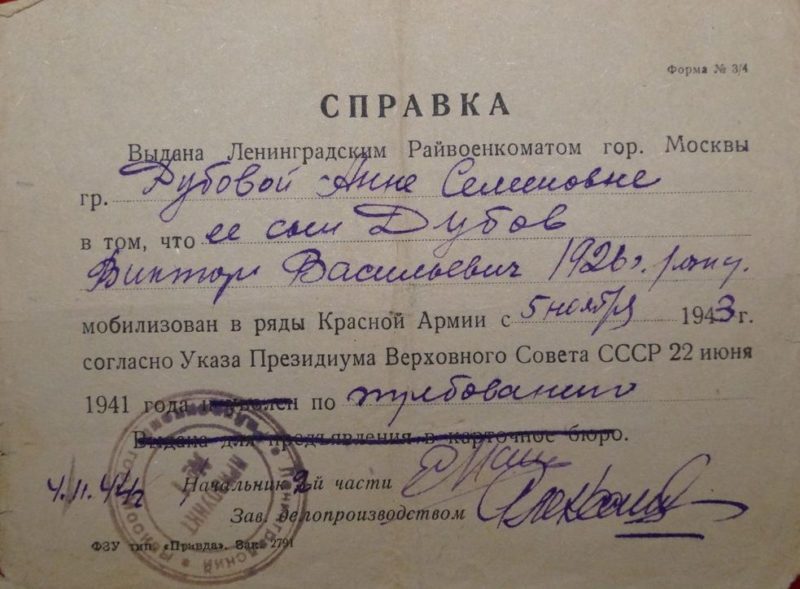 Форма № 3/4
СПРАВКА
Выдана Ленинградским Райвоенкоматом гор. Москвы
гр. Дубовой Анне Семеновне
в том, что ее сын Дубов
Виктор Васильевич 1926 г. рожд.
мобилизован в ряды Красной Армии с 5 ноября 1943 г.
согласно Указа Президиума Верховного Совета СССР 22 июня
1941 года и уволен по требованию
Выдана для предъявления в карточное бюро.
Начальник 2-й части
Зав. делопроизводством
ФЗУ тип. «Правда». Зак. 2791